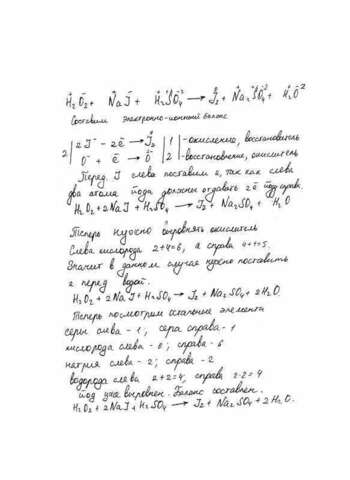 H₂O₂ + NaJ + H₂SO₄ → J₂ + Na₂SO₄ + H₂O
Составим электронно-ионный баланс
2 | 2J⁻ - 2ē → J₂ | 1 | - окисление, восстановитель
O⁻ + ē → O⁻² | 2 | - восстановление, окислитель
Перед J слева поставим 2, так как слева
два атома йода должны отдавать 2ē йод справ.
H₂O₂ + 2NaJ + H₂SO₄ → J₂ + Na₂SO₄ + H₂O
Теперь нужно выровнять окислитель
Слева кислорода 2+4=6, а справа 4+1=5.
Значит в данном случае нужно поставить
2 перед водой.
H₂O₂ + 2NaJ + H₂SO₄ → J₂ + Na₂SO₄ + 2H₂O
Теперь посмотрим остальные элементы
серы слева - 1; сера справа - 1
кислорода слева - 6; справа - 6
натрия слева - 2; справа - 2
водорода слева 2+2=4, справа 2·2=4
йод уже выровнен. Баланс составлен.
H₂O₂ + 2NaJ + H₂SO₄ → J₂ + Na₂SO₄ + 2H₂O.